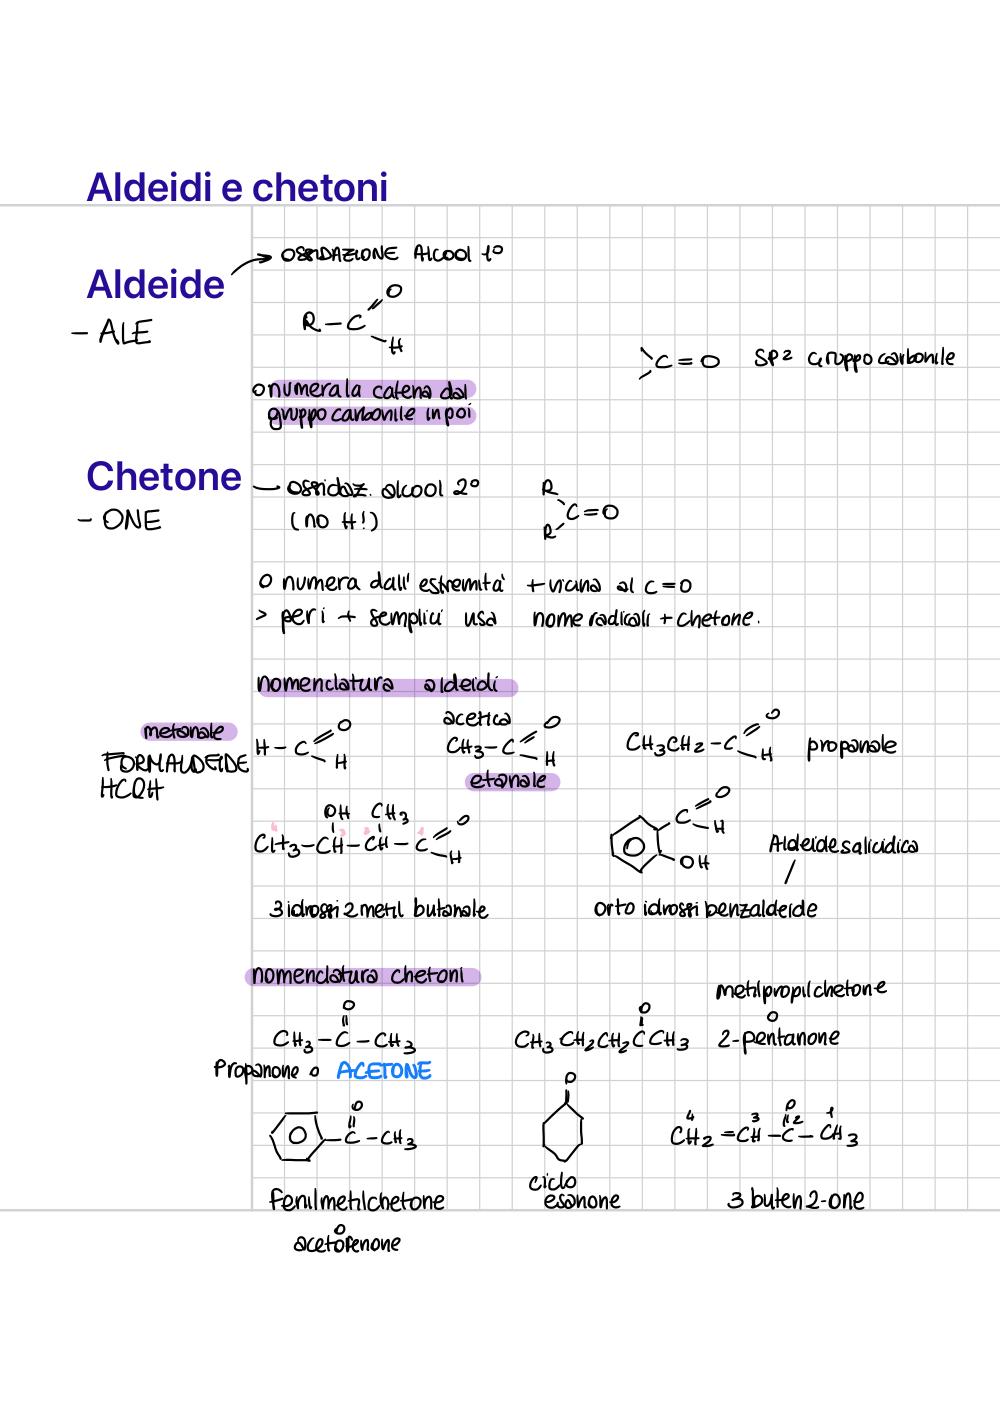 Aldeidi e chetoni
Aldeide → OSSIDAZIONE Alcool 1º
- ALE
O
R – C
H
C = O SP2 Gruppo carbonile
o numera la catena dal
gruppo carbonile in poi
Chetone — ossidaz. alcool 2º
- ONE (no H!)
R
C=O
R
o numera dall' estremita' + vicina al C=O
> per i + semplici usa nome radicali + chetone.
nomenclatura aldeidi
metanale
FORMALDEIDE
HCOH
H – C
O
H
acetica
CH3 – C
O
H
etanale
CH3CH2 – C
O
H
propanale
OH CH3
4 3 2 1
CH3 – CH – CH – C
O
H
3 idrossi 2 metil butanale
C
O
H
OH
Aldeide salicidica
orto idrossi benzaldeide
nomenclatura chetoni
O
CH3 – C – CH3
Propanone o ACETONE
O
CH3 CH2CH2 C CH3
metilpropilchetone
o
2-pentanone
O
C – CH3
fenilmetilchetone
o
acetofenone
O
ciclo
esanone
4 3 O 2 1
CH2 = CH – C – CH3
3 buten 2-one